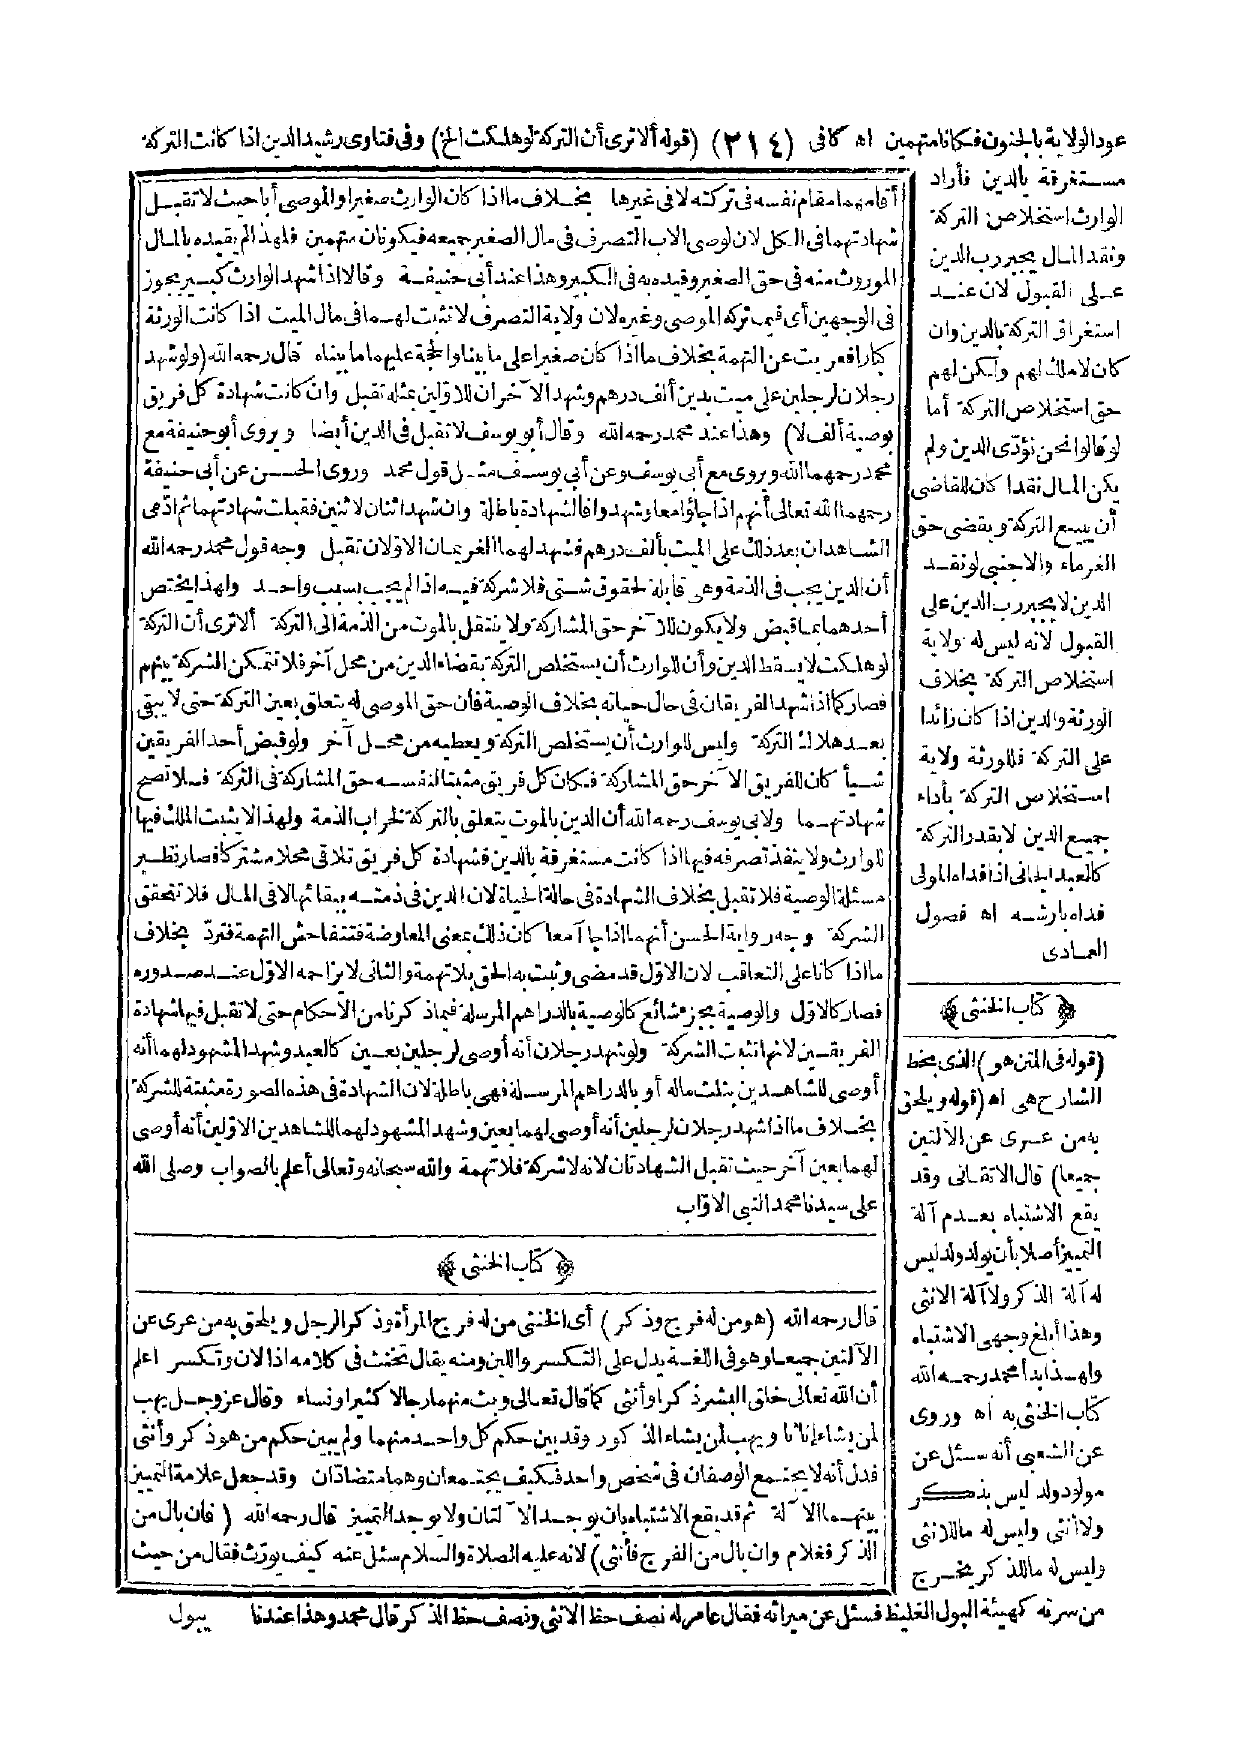 عود الولاية بالجنون فكانا متهمين اه كافى (٢١٤) (قوله ألا ترى أن التركة لو هلكت الخ) وفى فتاوى رشيد الدين اذا كانت التركة
مستغرقة بالدين فأراد
الوارث استخلاص التركة
ونقد المال يجبر رب الدين
على القبول لان عند
استغراق التركة بالدين وان
كان لا ملك لهم ولكن لهم
حق استخلاص التركة أما
لو قالوا نحن نؤدى الدين ولم
يكن المال نقدا كان للقاضى
أن يبيع التركة ويقضى حق
الغرماء والاجنبى لو نقد
الدين لا يجبر رب الدين على
القبول لانه ليس له ولاية
استخلاص التركة بخلاف
الورثة والدين اذا كان زائدا
على التركة فللورثة ولاية
استخلاص التركة بأداء
جميع الدين لا بقدر التركة
كالعبد الجانى اذا فداه المولى
فداه بارشه اه فصول
العمادى
﴿ كتاب الخنثى ﴾
(قوله فى المتن هو) الذى بخط
الشارح هى اه (قوله ويلحق
به من عرى عن الآلتين
جميعا) قال الاتقانى وقد
يقع الاشتباه بعدم آلة
التمييز أصلا بأن يولد ولد ليس
له آلة الذكر ولا آلة الانثى
وهذا أبلغ وجهى الاشتباه
ولهذا بدأ محمد رحمه الله
كتاب الخنثى به اه وروى
عن الشعبى أنه سئل عن
مولود ولد ليس بذكر
ولا أنثى وليس له ما للانثى
وليس له ما للذكر يخرج
من سرته كهيئة البول الغليظ فسئل عن ميراثه فقال عامر له نصف حظ الانثى ونصف حظ الذكر قال محمد وهذا عندنا يبول
أقامهما مقام نفسه فى تركته لا فى غيرها بخلاف ما اذا كان الوارث صغيرا والموصى أبا حيث لا تقبل
شهادتهما فى الكل لان لوصى الاب التصرف فى مال الصغير جميعه فيكونان متهمين فلهذا لم يقيده بالمال
الموروث منه فى حق الصغير وقيده به فى الكبير وهذا عند أبى حنيفة وقالا اذا شهد الوارث كبير يجوز
فى الوجهين أى فيما تركه الموصى وغيره لان ولاية التصرف لا تثبت لهما فى مال الميت اذا كانت الورثة
كبارا فعريت عن التهمة بخلاف ما اذا كان صغيرا على ما بينا والحجة عليهما ما بيناه قال رحمه الله (ولو شهد
رجلان لرجلين على ميت بدين ألف درهم وشهد الآخران للاولين بمثله تقبل وان كانت شهادة كل فريق
بوصية ألف لا) وهذا عند محمد رحمه الله وقال أبو يوسف لا تقبل فى الدين أيضا ويروى أبو حنيفة مع
محمد رحمهما الله ويروى مع أبى يوسف وعن أبى يوسف مثل قول محمد وروى الحسن عن أبى حنيفة
رحمهما الله تعالى أنهم اذا جاؤا معا وشهدوا فالشهادة باطلة وان شهد اثنان لاثنين فقبلت شهادتهما ثم ادعى
الشاهدان بعد ذلك على الميت بألف درهم فشهد لهما الغريمان الاولان تقبل وجه قول محمد رحمه الله
أن الدين يجب فى الذمة وهى قابلة لحقوق شتى فلا شركة فيه اذا لم يجب بسبب واحد ولهذا يختص
أحدهما بما قبض ولا يكون للآخر حق المشاركة ولا ينتقل بالموت من الذمة الى التركة ألا ترى أن التركة
لو هلكت لا يسقط الدين وأن للوارث أن يستخلص التركة بقضاء الدين من محل آخر فلا تتمكن الشركة بينهم
فصار كما اذا شهد الفريقان فى حال حياته بخلاف الوصية فان حق الموصى له يتعلق بعين التركة حتى لا يبقى
بعد هلاك التركة وليس للوارث أن يستخلص التركة ويعطيه من محل آخر ولو قبض أحد الفريقين
شيأ كان للفريق الآخر حق المشاركة فكان كل فريق مثبتا لنفسه حق المشاركة فى التركة فلا تصح
شهادتهما ولابى يوسف رحمه الله أن الدين بالموت يتعلق بالتركة لخراب الذمة ولهذا لا يثبت الملك فيها
للوارث ولا ينفذ تصرفه فيها اذا كانت مستغرقة بالدين فشهادة كل فريق تلاقى محلا مشتركا فصار نظير
مسئلة الوصية فلا تقبل بخلاف الشهادة فى حالة الحياة لان الدين فى ذمته ببقائها لا فى المال فلا تتحقق
الشركة وجه رواية الحسن أنهما اذا جاآ معا كان ذلك بمعنى المعاوضة فتتفاحش التهمة فترد بخلاف
ما اذا كانا على التعاقب لان الاول قد مضى وثبت به الحق بلا تهمة والثانى لا يزاحمه الاول عند صدوره
فصار كالاول والوصية بجزء شائع كالوصية بالدراهم المرسلة فيما ذكرنا من الاحكام حتى لا تقبل فيها شهادة
الفريقين لانها تثبت الشركة ولو شهد رجلان أنه أوصى لرجلين بعين كالعبد وشهد المشهود لهما أنه
أوصى للشاهدين بثلث ماله أو بالدراهم المرسلة فهى باطلة لان الشهادة فى هذه الصورة مثبتة للشركة
بخلاف ما اذا شهد رجلان لرجلين أنه أوصى لهما بعين وشهد المشهود لهما للشاهدين الاولين أنه أوصى
لهما بعين آخر حيث تقبل الشهادتان لانه لا شركة فلا تهمة والله سبحانه وتعالى أعلم بالصواب وصلى الله
على سيدنا محمد النبى الاواب
﴿ كتاب الخنثى ﴾
قال رحمه الله (هو من له فرج وذكر) أى الخنثى من له فرج المرأة وذكر الرجل ويلحق به من عرى عن
الآلتين جميعا وهو فى اللغة يدل على التكسر واللين ومنه يقال تخنث فى كلامه اذا لان وتكسر اعلم
أن الله تعالى خلق البشر ذكرا وأنثى كما قال تعالى وبث منهما رجالا كثيرا ونساء وقال عز وجل يهب
لمن يشاء إناثا ويهب لمن يشاء الذكور وقد بين حكم كل واحد منهما ولم يبين حكم من هو ذكر وأنثى
فدل أنه لا يجتمع الوصفان فى شخص واحد فكيف يجتمعان وهما متضادان وقد جعل علامة التمييز
بينهما الآلة ثم قد يقع الاشتباه بان يوجد الآلتان ولا يوجد التمييز قال رحمه الله (فان بال من
الذكر فغلام وان بال من الفرج فأنثى) لانه عليه الصلاة والسلام سئل عنه كيف يورث فقال من حيث